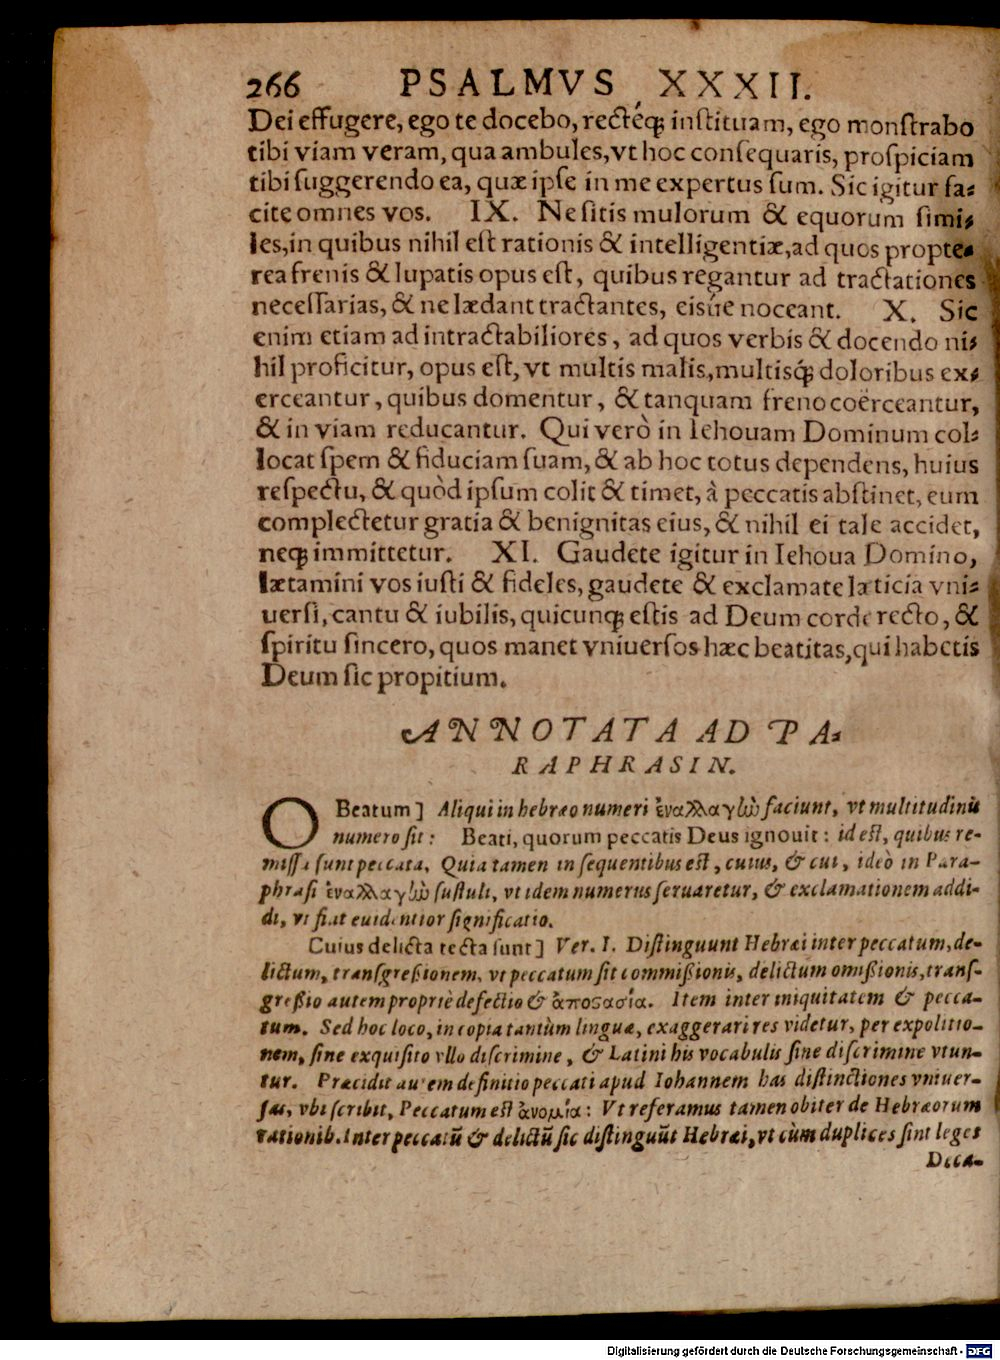 266 PSALMVS XXXII.
Dei effugere, ego te docebo, rectéq; instituam, ego monstrabo
tibi viam veram, qua ambules, vt hoc consequaris, prospiciam
tibi suggerendo ea, quæ ipse in me expertus sum. Sic igitur fa-
cite omnes vos. IX. Ne sitis mulorum & equorum simi-
les, in quibus nihil est rationis & intelligentiæ, ad quos propte-
rea frenis & lupatis opus est, quibus regantur ad tractationes
necessarias, & ne lædant tractantes, eisúe noceant. X. Sic
enim etiam ad intractabiliores, ad quos verbis & docendo ni-
hil proficitur, opus est, vt multis malis, multisq́; doloribus ex-
erceantur, quibus domentur, & tanquam freno coërceantur,
& in viam reducantur. Qui verò in Iehouam Dominum col-
locat spem & fiduciam suam, & ab hoc totus dependens, huius
respectu, & quòd ipsum colit & timet, à peccatis abstinet, eum
complectetur gratia & benignitas eius, & nihil ei tale accidet,
neq; immittetur. XI. Gaudete igitur in Iehoua Domino,
lætamini vos iusti & fideles, gaudete & exclamate læticia vni-
uersi, cantu & iubilis, quicunq; estis ad Deum corde recto, &
spiritu sincero, quos manet vniuersos hæc beatitas, qui habetis
Deum sic propitium.
ANNOTATA AD PA-
RAPHRASIN.
O Beatum] Aliqui in hebræo numeri ἐναλλαγὼ faciunt, vt multitudinis
numero sit: Beati, quorum peccatis Deus ignouit: id est, quibus re-
missa sunt peccata. Quia tamen in sequentibus est, cuius, & cui, ideò in Para-
phrasi ἐναλλαγὼ sustuli, vt idem numerus seruaretur, & exclamationem addi-
di, vt fiat euidentior significatio.
Cuius delicta tecta sunt] Ver. I. Distinguunt Hebræi inter peccatum, de-
lictum, transgreßionem, vt peccatum sit commißionis, delictum omißionis, trans-
greßio autem propriè defectio & ἀποστασία. Item inter iniquitatem & pecca-
tum. Sed hoc loco, in copia tantùm linguæ, exaggerari res videtur, per expolitio-
nem, sine exquisito vllo discrimine, & Latini his vocabulis sine discrimine vtun-
tur. Præcidit autem definitio peccati apud Iohannem has distinctiones vniuer-
sas, vbi scribit, Peccatum est ἀνομία: Vt referamus tamen obiter de Hebræorum
rationib. Inter peccatū & delictū sic distinguūt Hebræi, vt cùm duplices sint leges
Deca-
Digitalisierung gefördert durch die Deutsche Forschungsgemeinschaft - DFG